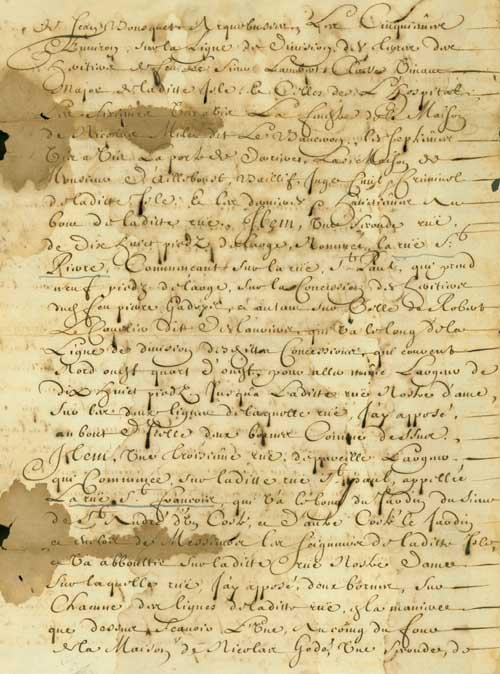 Et Jean Bousquet Arquebusier, Les Cinquième
Environ, sur la ligne de Division des terres des
héritiers de feu le Sieur Lambert Closse vivant
Major de ladite Isle, & Celles de L'Hospital
La Sixième vis à vis La de la Maison
de Nicolas Milet dit Le Beauceron, la septième
vis à vis La porte de La Maison de
Monsieur Dailleboust, Baillif, Juge Civil & Criminel
de ladite Isle, Et La dernière au
bout de ladite rue. Item, Une Seconde rüe,
de Dix huict piedz de large, Nommée, la rüe St.
Pierre, Commençant sur la rüe, St. Paul, qui prend
neuf piedz de large, sur la Concession des héritiers
dud. feu pierre Gadoys, & autant sur Celle de Robert
Le Cavelier dit Deslauriers, qui va le long de la
Ligne de division desdites Concessions, qui courent
Nord ouest quart d'ouest, pour aller mesme Largeur de
dix huict piedz Jusqu'a Laditte rüe Nostre dame,
Sur les deux lignes de laquelle rüe, J'ay apposé,
au bout d'Icelle deux bornes Comme dessus.
Item, Une troisième rüe, de pareille Largeur
qui Commence, Sur ladite rue St. paul, appellée
La rüe, St. francois, qui va le long du Jardin du Sieur
de St. André d'un Costé, & d'autre Costé le Jardin
& enclos de Messieurs les seigneurs de ladite Isle
& va abboutir Sur ladite rüe Nostre Dame
Sur laquelle rüe J'ay apposé, deux bornes, sur
Chacune des lignes de ladite rüe, & la manière
que dessus Scavoir L'Une, Au coing du four
de la Maison de Nicolas Godé, Une Seconde, de